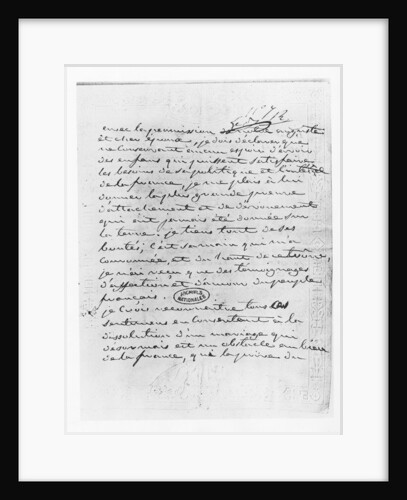 avec la permission de notre auguste
et cher époux, je dois déclarer que
ne conservant aucun espoir d'avoir
des enfans qui puissent satisfaire
les besoins de sa politique et l'intérêt
de la france, je me plais à lui
donner la plus grande preuve
d'attachement et de dévouement
qui ait jamais été donnée sur
la terre. je tiens tout de ses
bontés; c'est sa main qui m'a
couronnée, et du haut de ce trône,
je n'ai reçu que des témoignages
d'affection et d'amour du peuple
français.
ARCHIVES NATIONALES
je crois reconnaître tous ces
sentimens en consentant à la
dissolution d'un mariage qui
désormais est un obstacle au bien
de la france, qui la prive du